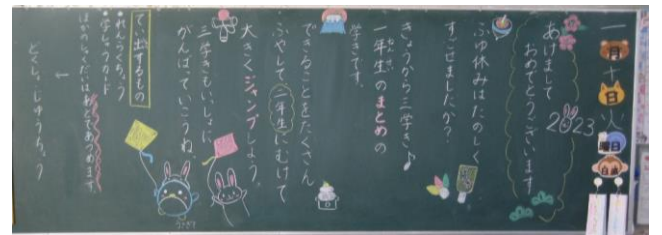 一月十日火曜日
2023
あけまして
おめでとうございます
ふゆ休みはたのしく
すごせましたか？
きょうから三学き♪
一年生のまとめの
学きです。
できることをたくさん
ふやして二年生にむけて
大きくジャンプしよう。
三学きもいっしょに
がんばっていこうね
てい出するもの
•れんらくちょう
•学しゅうカード
ほかのしゅくだいはあとであつめます
どくしょじゅうちょう